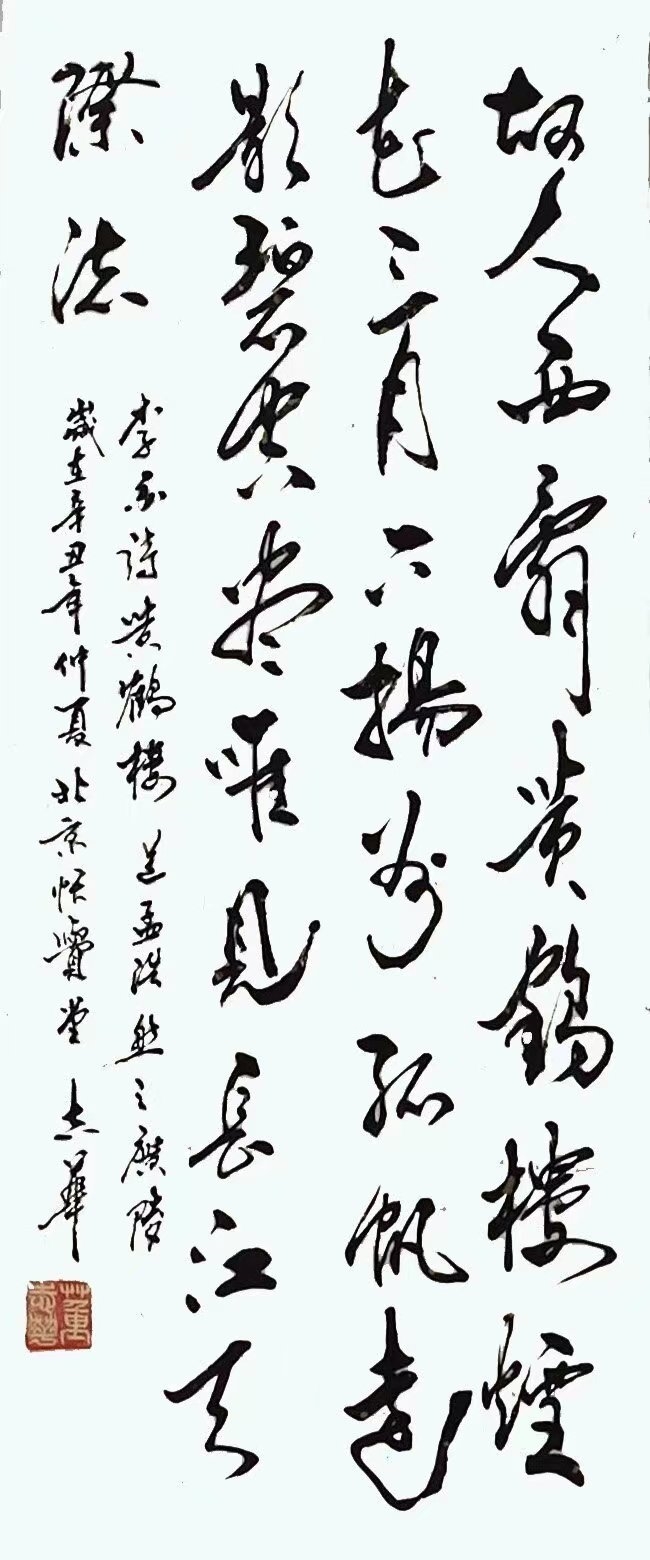 故人西辭黃鶴樓煙
花三月下揚州孤帆遠
影碧空盡唯見長江天
際流
李白詩黃鶴樓送孟浩然之廣陵
歲在辛丑年仲夏北京寶堂志華
董志華